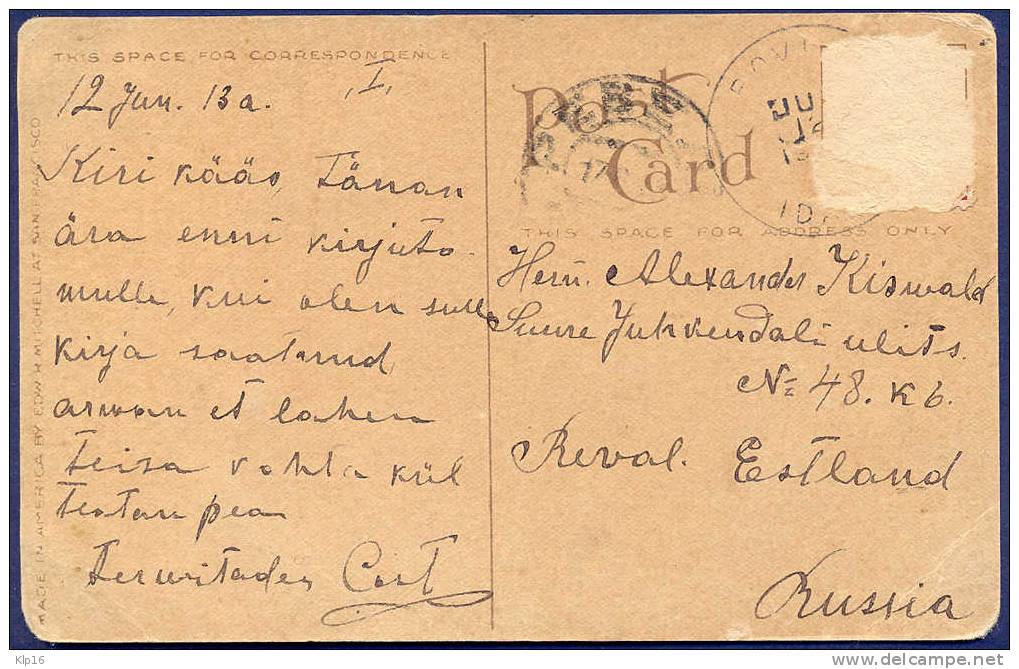 THIS SPACE FOR CORRESPONDENCE
12 Jun. 13 a. I,
Kiri kääs, Tänan
ära enni kirjuto
mulle, kui olen sulle
kirja saatnud,
arwan et lahen
teisa vohta kül
teatan pea
Terwitades
MADE IN AMERICA BY EDW H MITCHELL AT SAN FRANCISCO
Post
Card
IDA
THIS SPACE FOR ADDRESS ONLY
Herrn. Alexander Kiswald
Suure Juhkendali ulits.
№ 48. k 6.
Reval. Estland
Russia
Klp16
www.delcampe.net